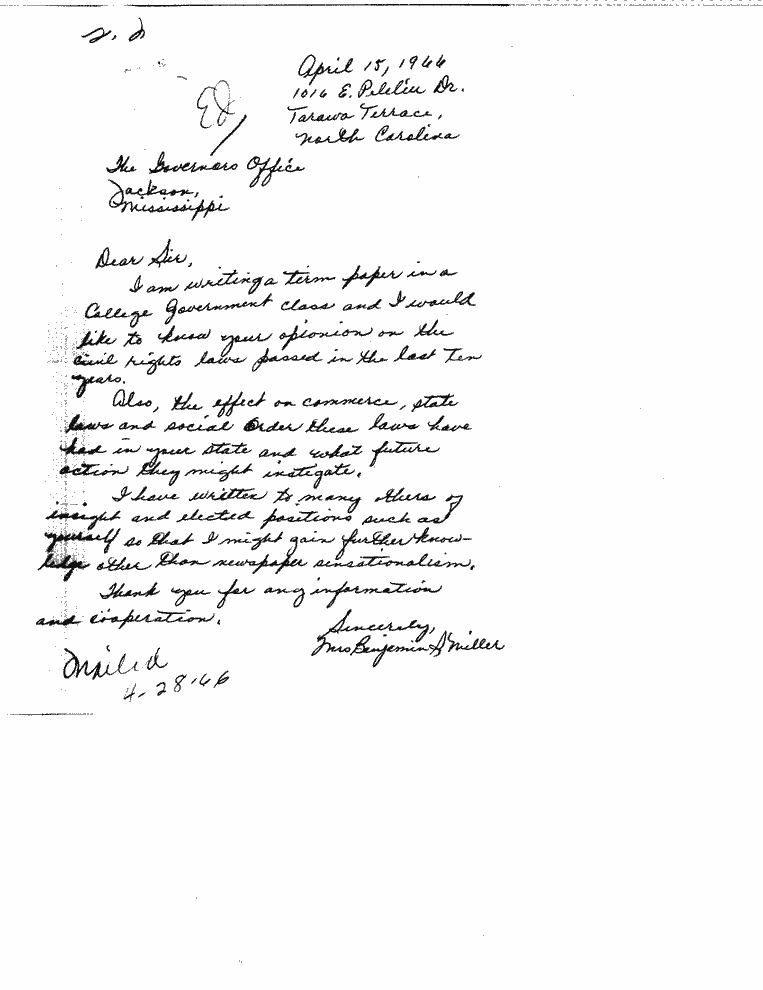 April 15, 1966
1016 E. Peleliu Dr.
Tarawa Terrace,
North Carolina
Ed
The Governors Office
Jackson,
Mississippi
Dear Sir,
I am writing a term paper in a
College Government class and I would
like to know your opionion on the
civil rights laws passed in the last ten
years.
Also, the effect on commerce, state
laws and social order these laws have
had in your state and what future
action they might instigate.
I have written to many others of
insight and elected positions such as
yourself so that I might gain further know-
ledge other than newspaper sensationalism.
Thank you for any information
and cooperation.
Sincerely,
Mrs Benjamin S Miller
Mailed
4-28-66